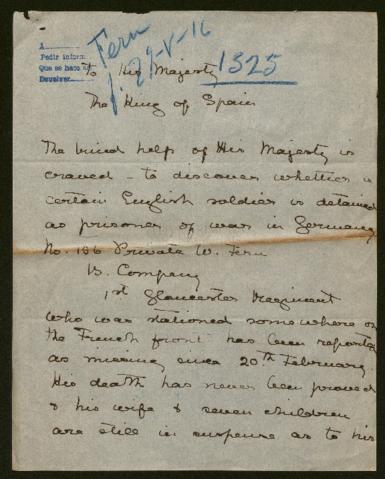 A
Pedir inform
Que se hato
Devolver
Fern
29-V-16
1325
To His Majesty
The King of Spain
The kind help of His Majesty is
craved - to discover whether a
certain English soldier is detained
as prisoner of war in Germany
No. 186 Private W. Fern
B. Company
1st Gloucester Regiment
who was stationed somewhere on
the French front has been reported
as missing since 20th February
His death has never been proved
& his wife & seven children
are still in suspense as to his